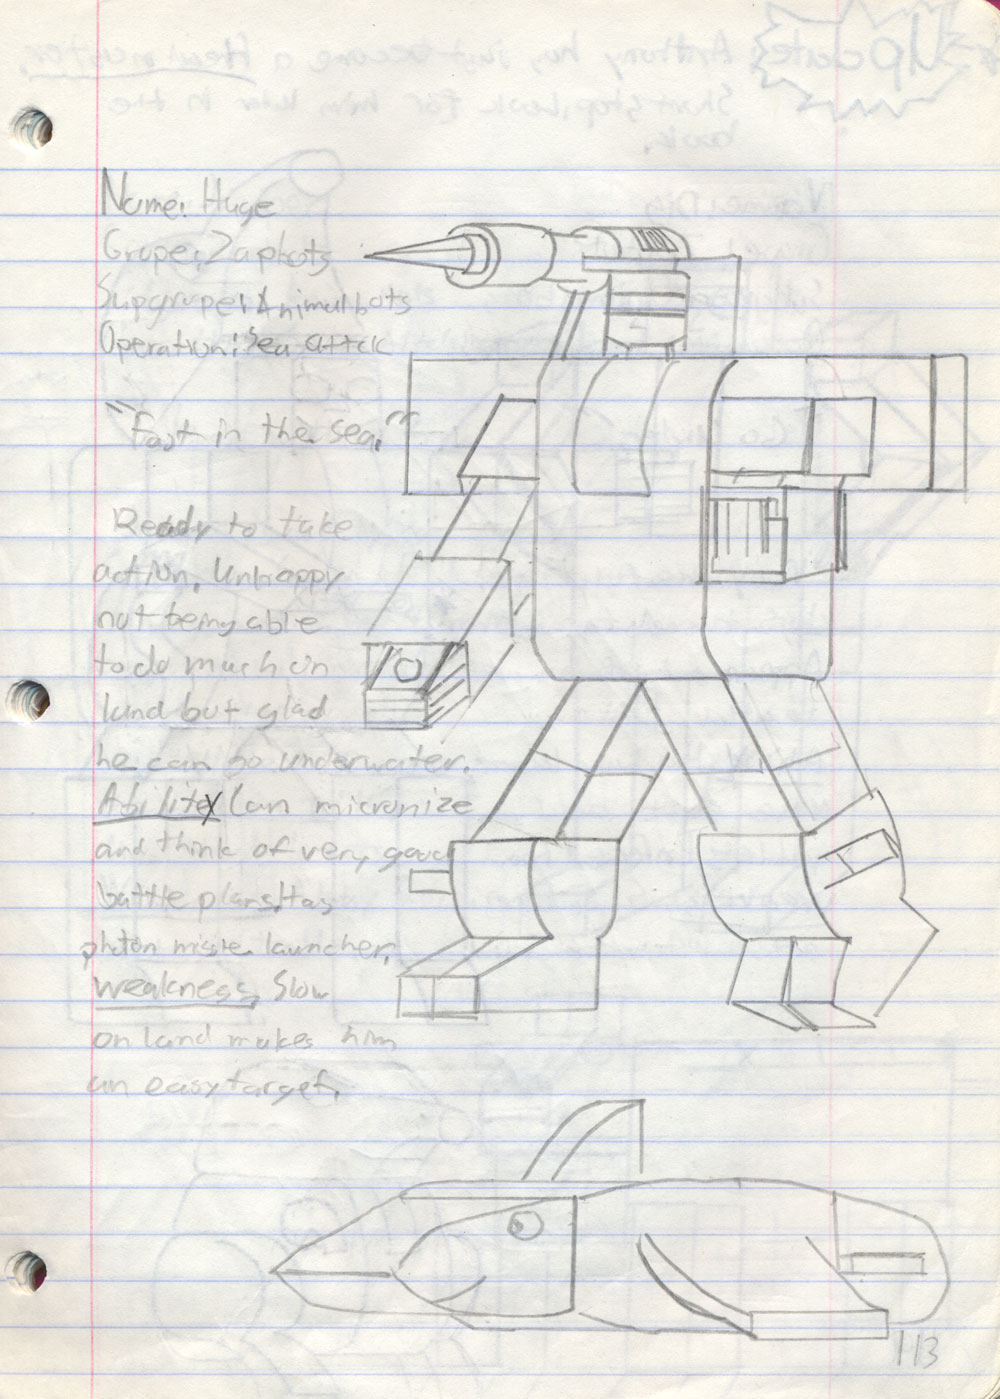 Name: Huge
Grupe: Zapbots
Supgrupe: Animalbots
Operation: Sea attck
"Fast in the sea."
Ready to take
action. Unhappy
not being able
to do much on
land but glad
he can go underwater.
Ability Can micronize
and think of very good
battle plans. Has
photon missle launcher.
weakness, Slow
on land makes him
an easy target.
113